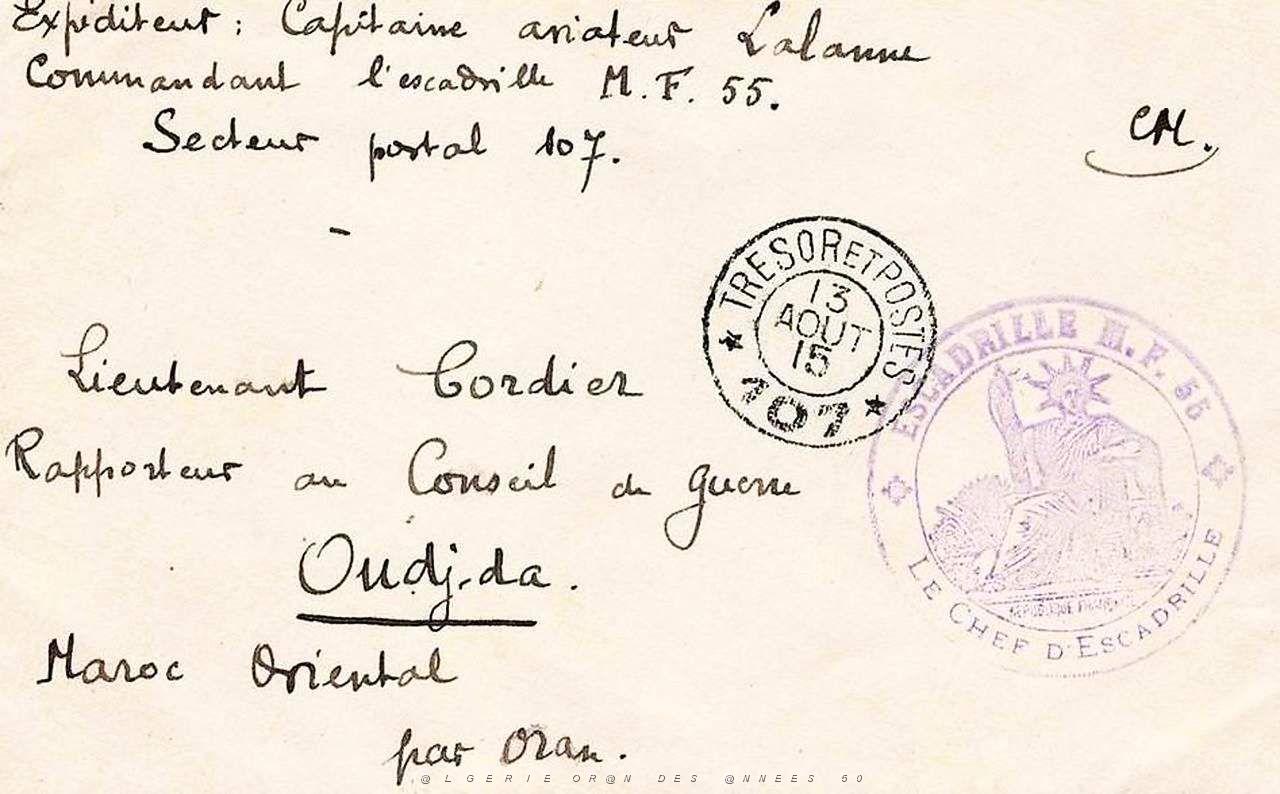 Expéditeur : Capitaine aviateur Lalanne
Commandant l'escadrille M. F. 55.
Secteur postal 107.
CM.
TRESOR ET POSTES
13
AOUT
15
107
ESCADRILLE M. F. 55
REPUBLIQUE FRANÇAISE
LE CHEF D'ESCADRILLE
Lieutenant Cordier
Rapporteur au Conseil de guerre
Oudj-da.
Maroc Oriental
par Oran.
@LGERIE OR@N DES @NNEES 50